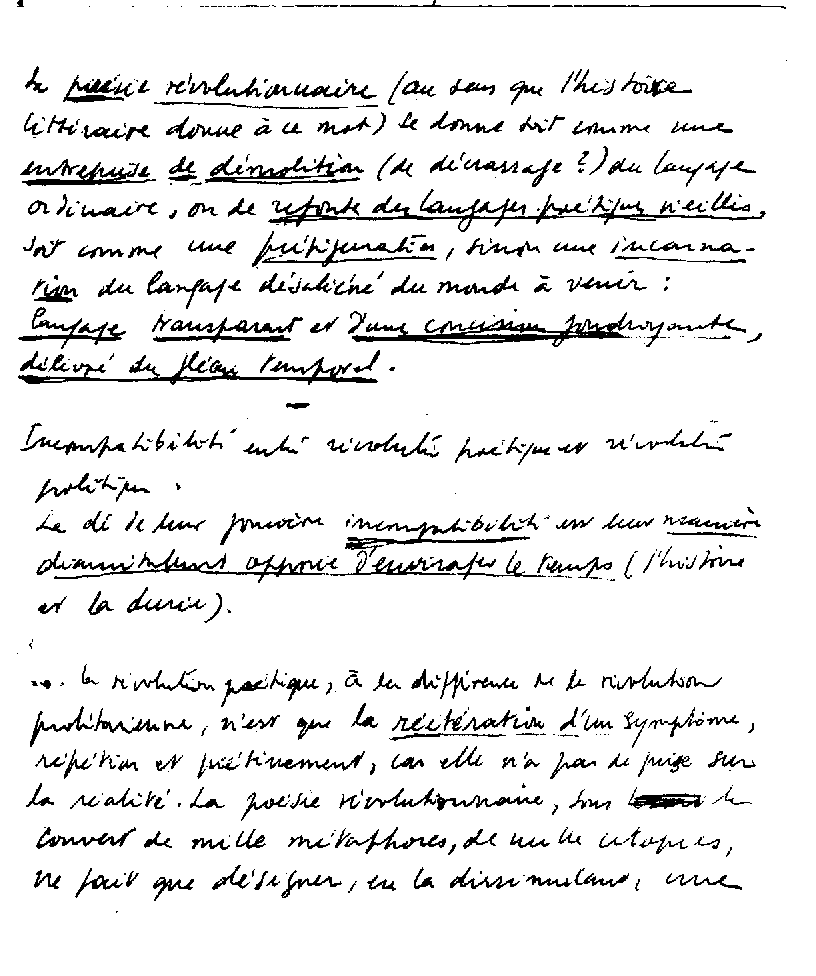 La poésie révolutionnaire (au sens que l'histoire
littéraire donne à ce mot) se donne soit comme une
entreprise de démolition (de décrassage ?) du langage
ordinaire, ou de refonte des langages poétiques vieillis,
soit comme une préfiguration, sinon une incarna-
tion du langage désaliéné du monde à venir :
langage transparent et d'une concision foudroyante,
délivré du fléau temporel.
Incompatibilité entre révolution poétique et révolution
politique.
La clé de leur foncière incompatibilité est leur manière
diamétralement opposée d'envisager le temps (l'histoire
et la durée).
... la révolution poétique, à la différence de la révolution
prolétarienne, n'est que la réitération d'un symptôme,
répétition et piétinement, car elle n'a pas de prise sur
la réalité. La poésie révolutionnaire, sous le
couvert de mille métaphores, de mille utopies,
ne fait que désigner, en la dissimulant, une